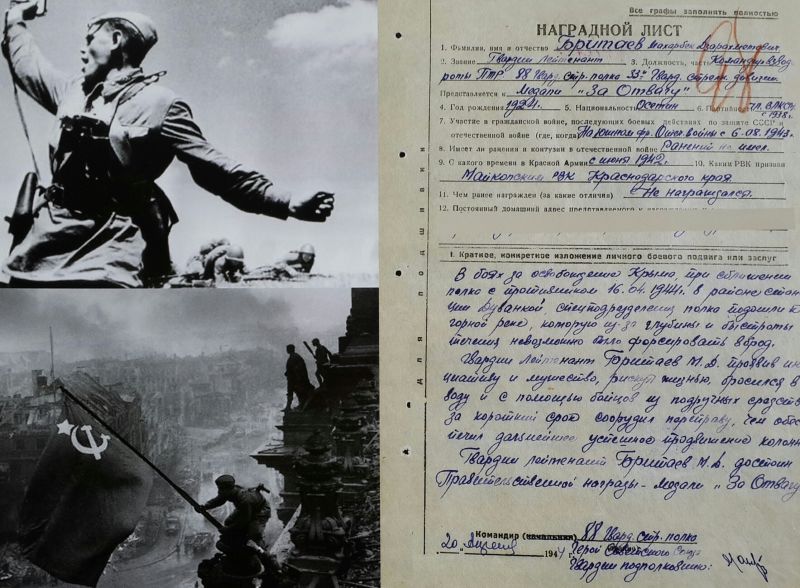 Все графы заполнять полностью
НАГРАДНОЙ ЛИСТ
1. Фамилия, имя и отчество Бритаев Махарбек Дзарахметович
2. Звание Гвардии Лейтенант 3. Должность, часть Командир взвод
роты ПТР 88 Гвард. стр. полка 33й Гвард. стрелк. дивизии
Представляется к Медали „За Отвагу"
4. Год рождения 1922г. 5. Национальность Осетин 6. Партийность чл. ВЛКСМ
с 1938г.
7. Участие в гражданской войне, последующих боевых действиях по защите СССР и
отечественной войне (где, когда) На южном фр. Отеч. войны с 6.08.1943г.
8. Имеет ли ранения и контузии в отечественной войне Ранений не имел.
9. С какого времени в Красной Армии с июня 1942г. 10. Каким РВК призван
Майкопским РВК Краснодарского края
11. Чем ранее награжден (за какие отличия) Не награждался.
12. Постоянный домашний адрес представляемого к
для подшивки
I. Краткое, конкретное изложение личного боевого подвига или заслуг
В боях за освобождение Крыма, при сближении
полка с противником 16.04.1944г. в районе стан
ции Дуванкой, спецподразделения полка подошли к
горной реке, которую из-за глубины и быстроты
течения невозможно было форсировать вброд.
Гвардии Лейтенант Бритаев М.Д. проявив ини
циативу и мужество, рискуя жизнью, бросился в
воду и с помощью бойцов из подручных средств
за короткий срок соорудил переправу, чем обес
печил дальнейшее успешное продвижение колонн
Гвардии Лейтенант Бритаев М.Д. достоин
Правительственной награды - медали „За Отвагу
Командир (начальник) 88 Гвард. стр. полка
20 „ Апреля 1944г. Герой Советского Союза
Гвардии подполковник: